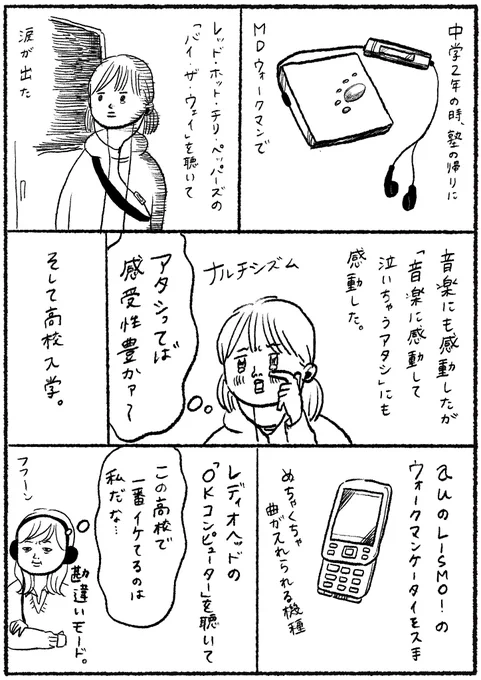 中学2年の時、塾の帰りに
MDウォークマンで
レッド・ホット・チリ・ペッパーズの
「バイ・ザ・ウェイ」を聴いて
涙が出た
音楽にも感動したが
「音楽に感動して
泣いちゃうアタシ」にも
感動した。
ナルチシズム
アタシってば
感受性豊かァ〜
そして高校入学。
auのLISMO!の
ウォークマンケータイを入手
めちゃくちゃ
曲が入れられる機種
レディオヘッドの
「OKコンピューター」を聴いて
この高校で
一番イケてるのは
私だな…
ファーン
勘違いモード。